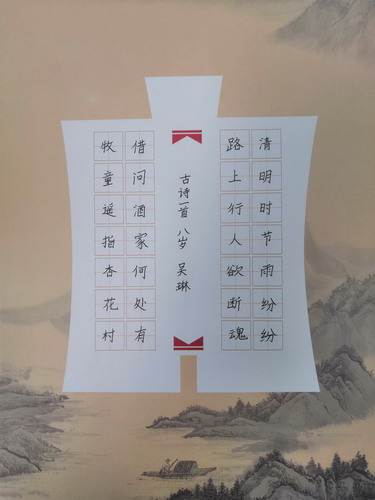 清明时节雨纷纷
路上行人欲断魂
古诗一首 八岁 吴琳
借问酒家何处有
牧童遥指杏花村